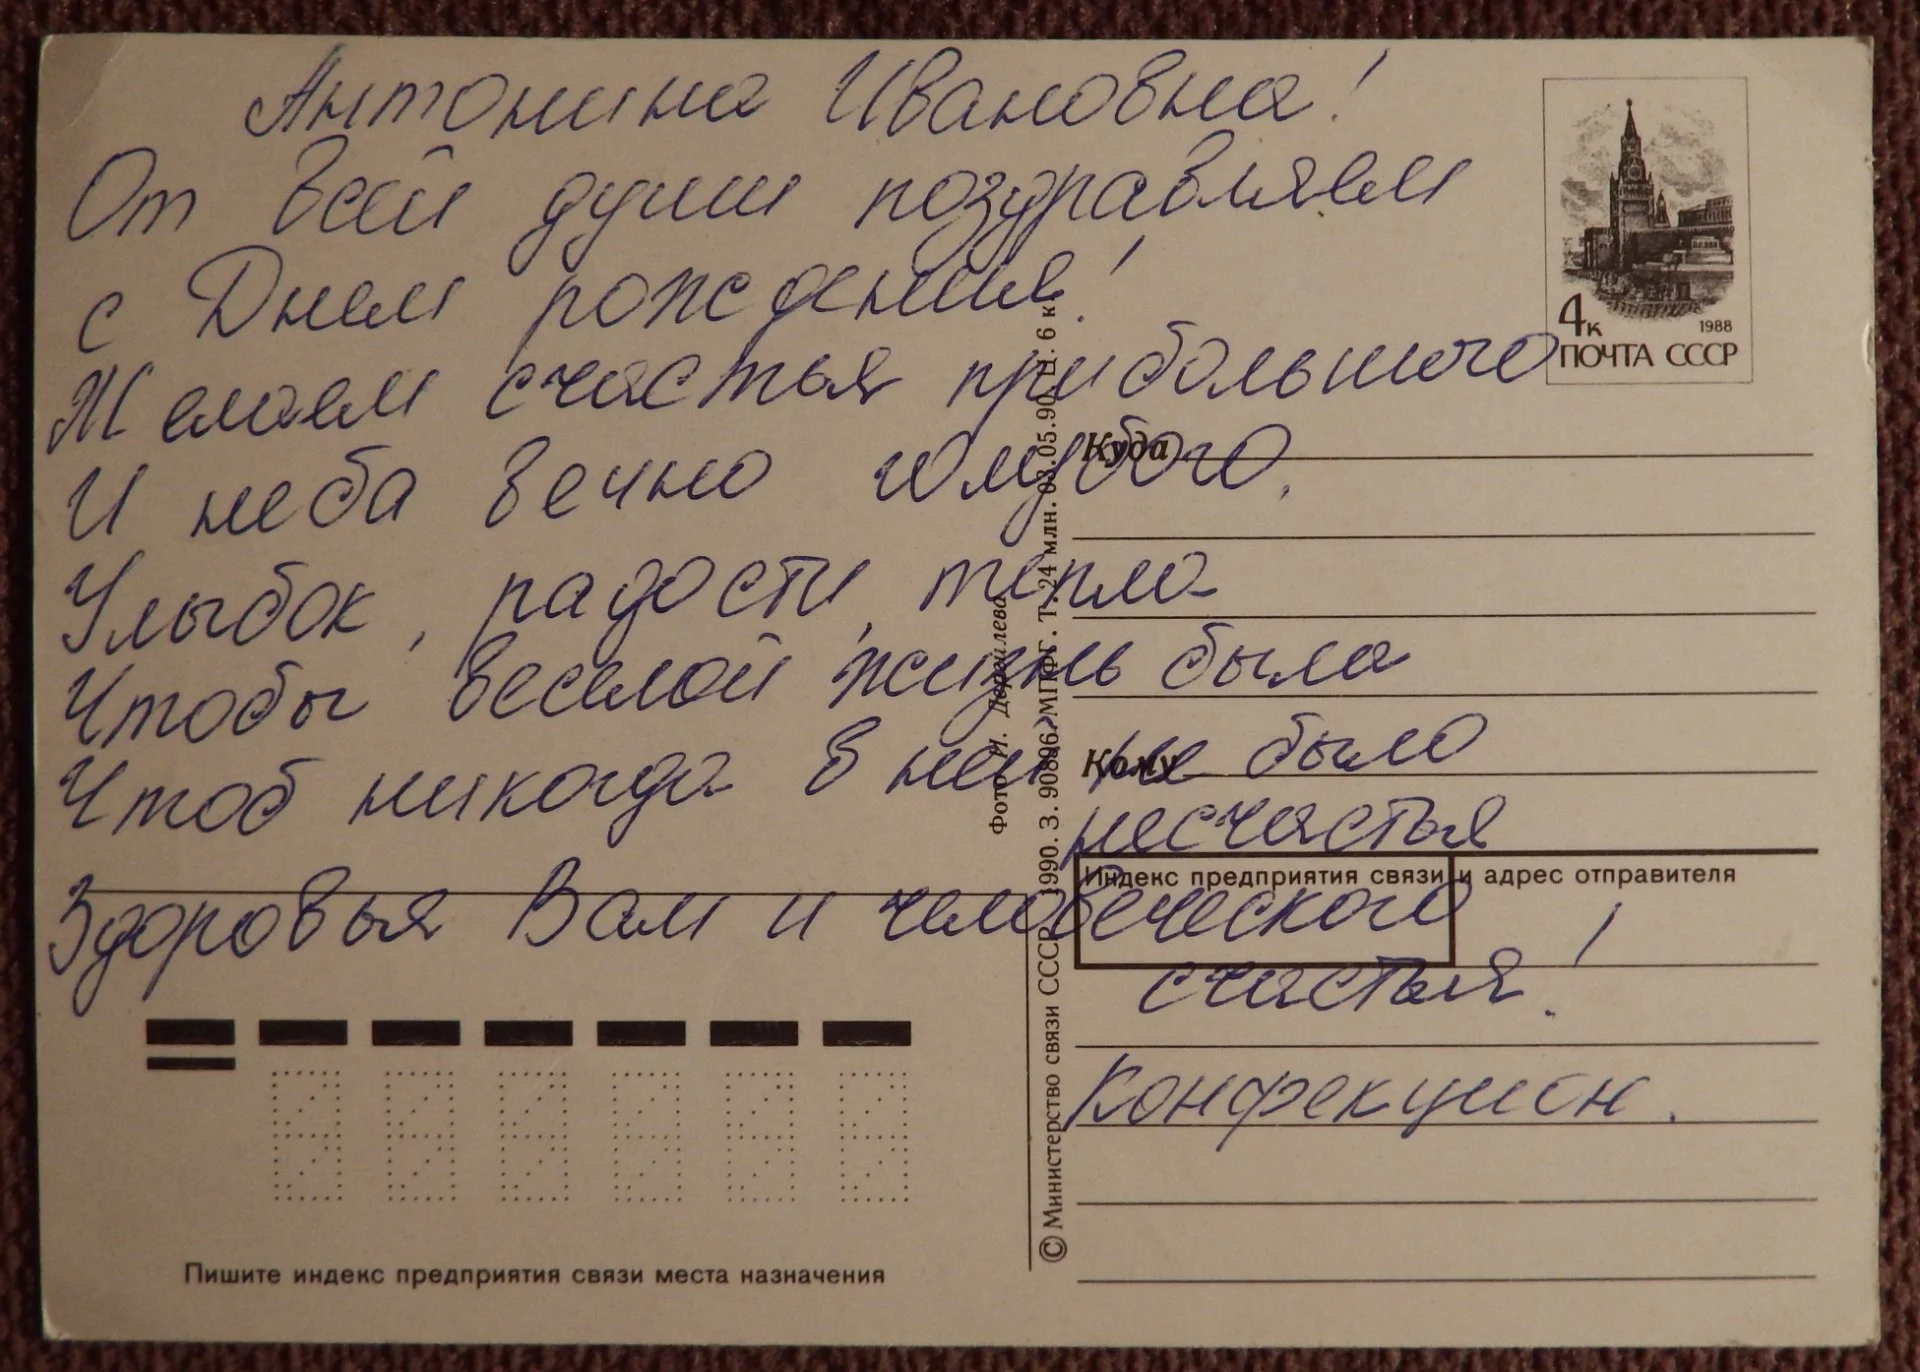 Антонина Ивановна!
От всей души поздравляем
с Днем рождения!
Желаем счастья прибольшого
И неба вечно голубого.
Улыбок, радости, тепла
Чтобы веселой жизнь была
Чтоб никогда в ней не было
несчастья
Здоровья Вам и человеческого
счастья!
Конфекцион.
4к
1988
ПОЧТА СССР
Куда
Кому
Индекс предприятия связи и адрес отправителя
Фото И. Дергилева
© Министерство связи СССР. 1990. З. 90896. МПФГ. Т. 24 млн. 03.05.90. Ц. 6 к.
Пишите индекс предприятия связи места назначения